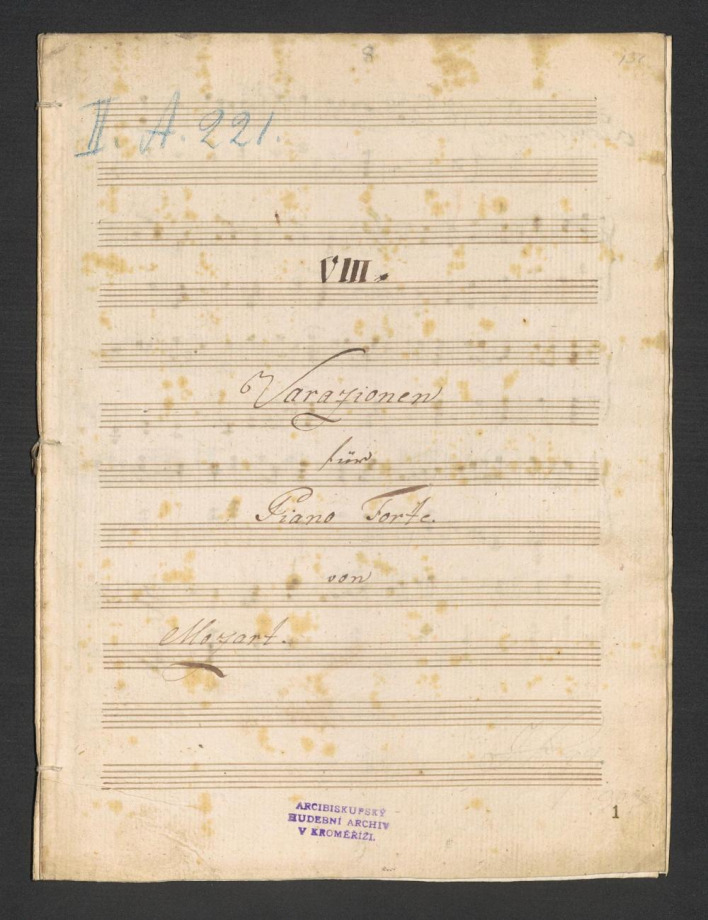 8
II. A. 221.
VIII.
Varazionen
für
Piano Forte.
von
Mozart.
ARCIBISKUPSKÝ
HUDEBNÍ ARCHIV
V KROMĚŘÍŽI.
1